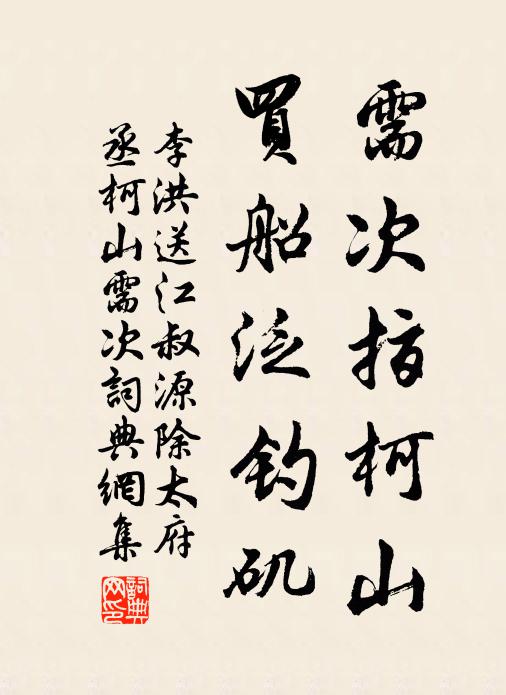 需次指柯山
買船泛钓矶
李洪送江叔源除太府
丞柯山需次詞典網集
詞典
网印